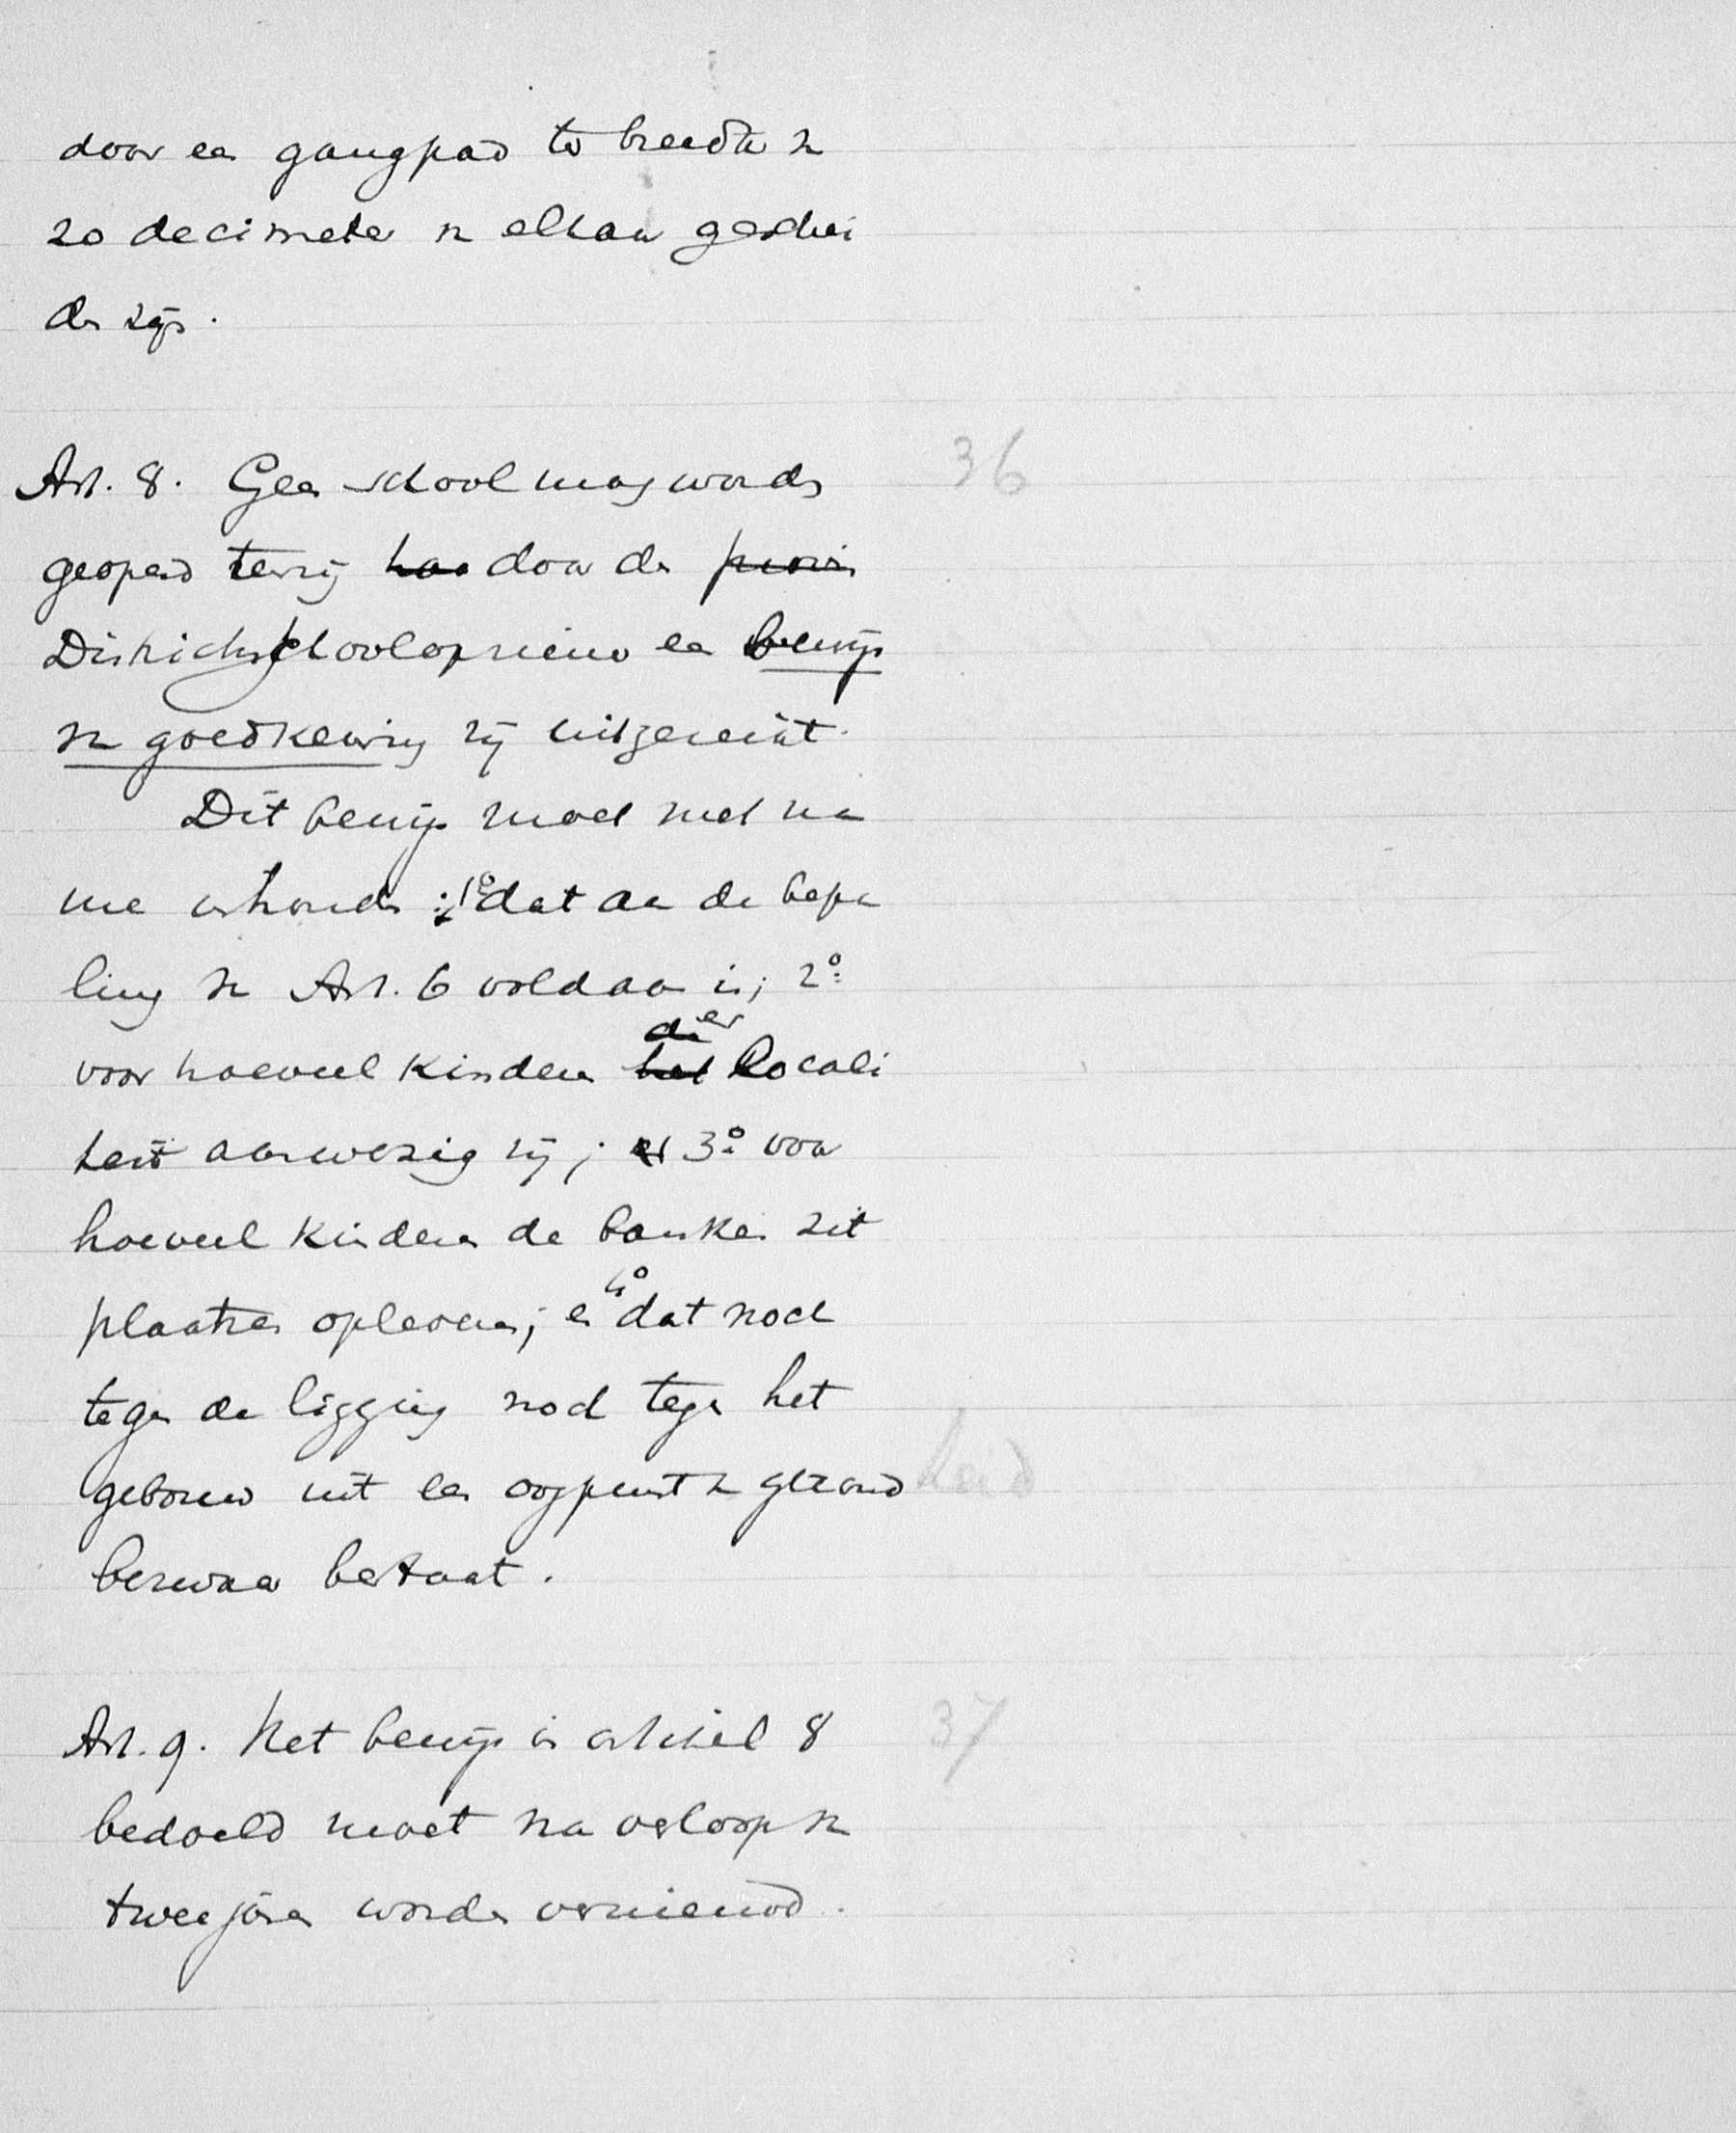 door een gangpad ter breedte van
20 decimeter van elkaar geschei
den zijn.
Art. 8. Geen school mag worden 36
geopend tenzij door den
Districtsschoolopziener een bewijs
van goedkeuring zij uitgereikt.
Dit bewijs moet met na
me inhouden: 1º dat aan de bepa
ling van Art. 6 voldaan is; 2º
voor hoeveel kinderen er locali
teit aanwezig zij; 3º voor
hoeveel kinderen de banken zit
plaatsen opleveren; en 4º dat noch
tegen de ligging noch tegen het
gebouw uit een oogpunt van gezond heid
bezwaar bestaat.
Art. 9. Het bewijs in artikel 8 37
bedoeld moet na verloop van
twee jaren worden vernieuwd.